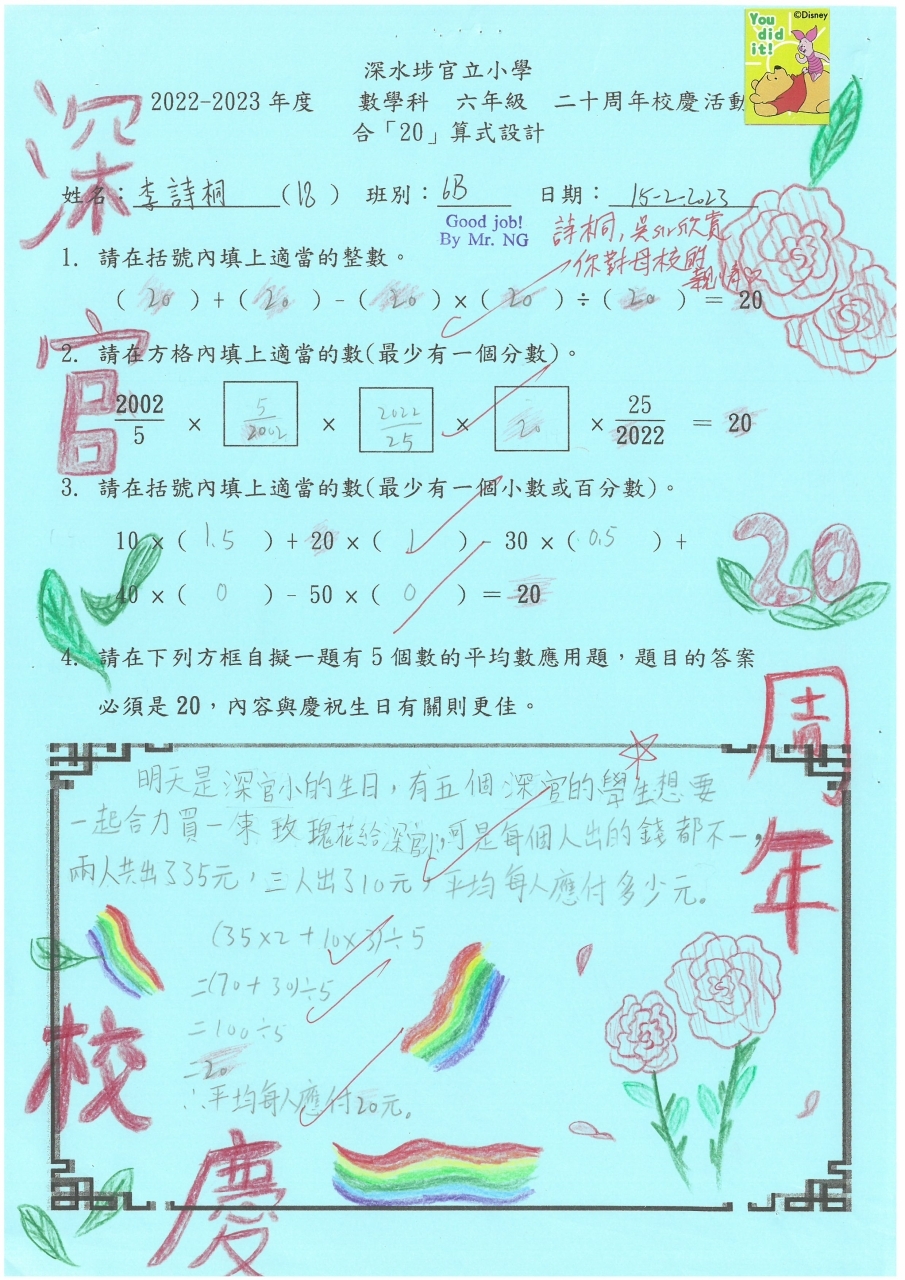 You did it!
©Disney
深水埗官立小學
2022-2023 年度 數學科 六年級 二十周年校慶活動
合「20」算式設計
姓名：李詩桐 (18) 班別：6B 日期：15-2-2023
Good job!
By Mr. NG
詩桐，吳sir欣賞
你對母校的
1. 請在括號內填上適當的整數。
( 20 ) + ( 20 ) - ( 20 ) × ( 20 ) ÷ ( 20 ) = 20
2. 請在方格內填上適當的數(最少有一個分數)。
2002/5 × 5/2002 × 2022/25 × 20 × 25/2022 = 20
3. 請在括號內填上適當的數(最少有一個小數或百分數)。
10 × ( 1.5 ) + 20 × ( 1 ) - 30 × ( 0.5 ) +
40 × ( 0 ) - 50 × ( 0 ) = 20
4. 請在下列方框自擬一題有 5 個數的平均數應用題，題目的答案
必須是 20，內容與慶祝生日有關則更佳。
明天是深官小的生日，有五個深官的學生想要
一起合力買一束玫瑰花給深官小，可是每個人出的錢都不一，
兩人共出了35元，三人出了10元，平均每人應付多少元。
(35×2+10×3)÷5
=(70+30)÷5
=100÷5
=20
∴平均每人應付20元。
深官
20
周年
校慶